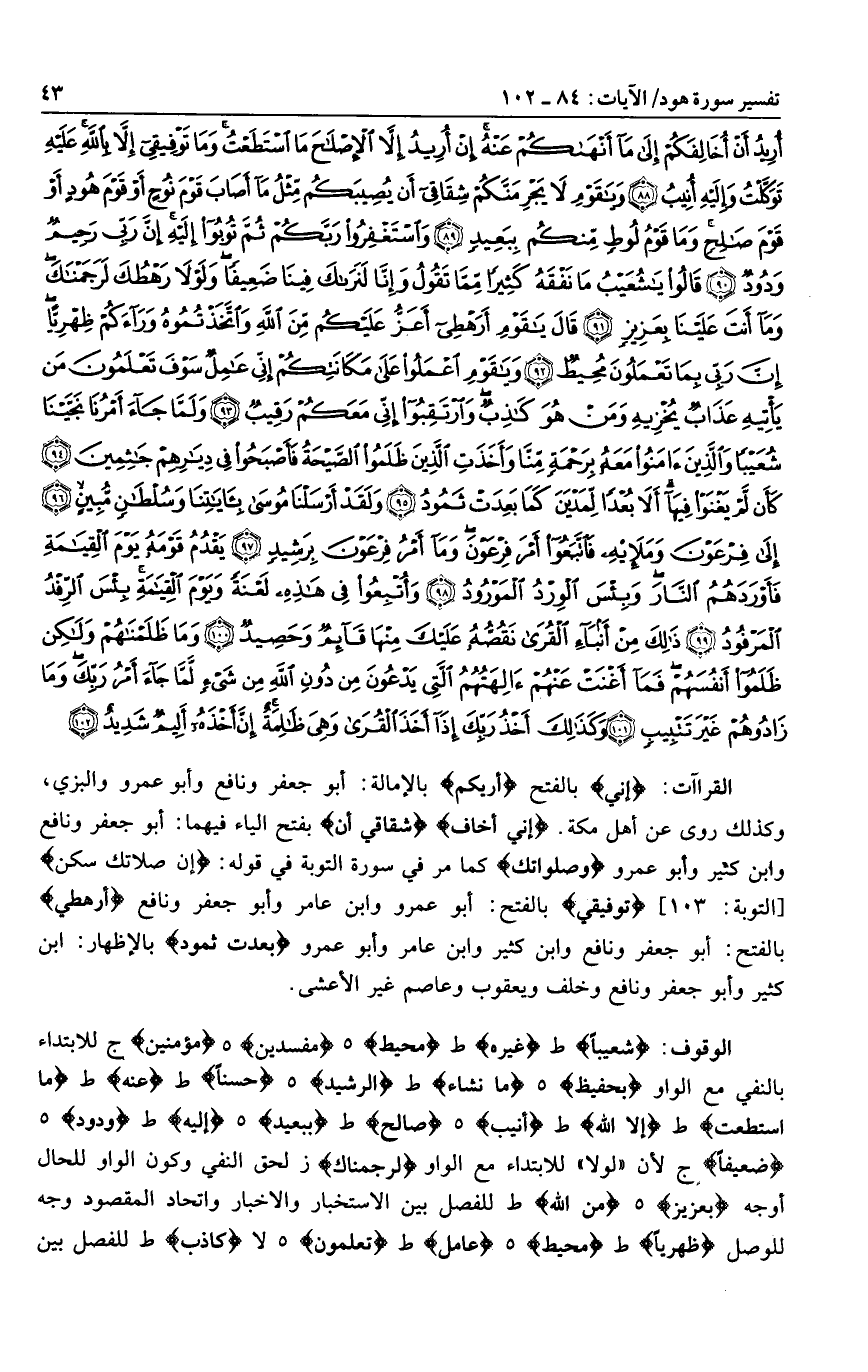 تفسير سورة هود/ الآيات: ٨٤ - ١٠٢ ٤٣
أُرِيدُ أَنْ أُخَالِفَكُمْ إِلَىٰ مَآ أَنْهَىٰكُمْ عَنْهُ ۚ إِنْ أُرِيدُ إِلَّا ٱلْإِصْلَٰحَ مَا ٱسْتَطَعْتُ ۚ وَمَا تَوْفِيقِىٓ إِلَّا بِٱللَّهِ ۚ عَلَيْهِ
تَوَكَّلْتُ وَإِلَيْهِ أُنِيبُ ﴿٨٨﴾ وَيَٰقَوْمِ لَا يَجْرِمَنَّكُمْ شِقَاقِىٓ أَن يُصِيبَكُم مِّثْلُ مَآ أَصَابَ قَوْمَ نُوحٍ أَوْ قَوْمَ هُودٍ أَوْ
قَوْمَ صَٰلِحٍ ۚ وَمَا قَوْمُ لُوطٍ مِّنكُم بِبَعِيدٍ ﴿٨٩﴾ وَٱسْتَغْفِرُوا۟ رَبَّكُمْ ثُمَّ تُوبُوٓا۟ إِلَيْهِ ۚ إِنَّ رَبِّى رَحِيمٌ
وَدُودٌ ﴿٩٠﴾ قَالُوا۟ يَٰشُعَيْبُ مَا نَفْقَهُ كَثِيرًا مِّمَّا تَقُولُ وَإِنَّا لَنَرَىٰكَ فِينَا ضَعِيفًا ۖ وَلَوْلَا رَهْطُكَ لَرَجَمْنَٰكَ ۖ
وَمَآ أَنتَ عَلَيْنَا بِعَزِيزٍ ﴿٩١﴾ قَالَ يَٰقَوْمِ أَرَهْطِىٓ أَعَزُّ عَلَيْكُم مِّنَ ٱللَّهِ وَٱتَّخَذْتُمُوهُ وَرَآءَكُمْ ظِهْرِيًّا ۖ
إِنَّ رَبِّى بِمَا تَعْمَلُونَ مُحِيطٌ ﴿٩٢﴾ وَيَٰقَوْمِ ٱعْمَلُوا۟ عَلَىٰ مَكَانَتِكُمْ إِنِّى عَٰمِلٌ ۖ سَوْفَ تَعْلَمُونَ مَن
يَأْتِيهِ عَذَابٌ يُخْزِيهِ وَمَنْ هُوَ كَٰذِبٌ ۖ وَٱرْتَقِبُوٓا۟ إِنِّى مَعَكُمْ رَقِيبٌ ﴿٩٣﴾ وَلَمَّا جَآءَ أَمْرُنَا نَجَّيْنَا
شُعَيْبًا وَٱلَّذِينَ ءَامَنُوا۟ مَعَهُۥ بِرَحْمَةٍ مِّنَّا وَأَخَذَتِ ٱلَّذِينَ ظَلَمُوا۟ ٱلصَّيْحَةُ فَأَصْبَحُوا۟ فِى دِيَٰرِهِمْ جَٰثِمِينَ ﴿٩٤﴾
كَأَن لَّمْ يَغْنَوْا۟ فِيهَآ ۗ أَلَا بُعْدًا لِّمَدْيَنَ كَمَا بَعِدَتْ ثَمُودُ ﴿٩٥﴾ وَلَقَدْ أَرْسَلْنَا مُوسَىٰ بِـَٔايَٰتِنَا وَسُلْطَٰنٍ مُّبِينٍ ﴿٩٦﴾
إِلَىٰ فِرْعَوْنَ وَمَلَإِي۟هِۦ فَٱتَّبَعُوٓا۟ أَمْرَ فِرْعَوْنَ ۖ وَمَآ أَمْرُ فِرْعَوْنَ بِرَشِيدٍ ﴿٩٧﴾ يَقْدُمُ قَوْمَهُۥ يَوْمَ ٱلْقِيَٰمَةِ
فَأَوْرَدَهُمُ ٱلنَّارَ ۖ وَبِئْسَ ٱلْوِرْدُ ٱلْمَوْرُودُ ﴿٩٨﴾ وَأُتْبِعُوا۟ فِى هَٰذِهِۦ لَعْنَةً وَيَوْمَ ٱلْقِيَٰمَةِ ۚ بِئْسَ ٱلرِّفْدُ
ٱلْمَرْفُودُ ﴿٩٩﴾ ذَٰلِكَ مِنْ أَنۢبَآءِ ٱلْقُرَىٰ نَقُصُّهُۥ عَلَيْكَ ۖ مِنْهَا قَآئِمٌ وَحَصِيدٌ ﴿١٠٠﴾ وَمَا ظَلَمْنَٰهُمْ وَلَٰكِن
ظَلَمُوٓا۟ أَنفُسَهُمْ ۖ فَمَآ أَغْنَتْ عَنْهُمْ ءَالِهَتُهُمُ ٱلَّتِى يَدْعُونَ مِن دُونِ ٱللَّهِ مِن شَىْءٍ لَّمَّا جَآءَ أَمْرُ رَبِّكَ ۖ وَمَا
زَادُوهُمْ غَيْرَ تَتْبِيبٍ ﴿١٠١﴾ وَكَذَٰلِكَ أَخْذُ رَبِّكَ إِذَآ أَخَذَ ٱلْقُرَىٰ وَهِىَ ظَٰلِمَةٌ ۚ إِنَّ أَخْذَهُۥٓ أَلِيمٌ شَدِيدٌ ﴿١٠٢﴾
القراآت: ﴿إني﴾ بالفتح ﴿أريكم﴾ بالإمالة: أبو جعفر ونافع وأبو عمرو والبزي،
وكذلك روى عن أهل مكة. ﴿إني أخاف﴾ ﴿شقاقي أن﴾ بفتح الياء فيهما: أبو جعفر ونافع
وابن كثير وأبو عمرو ﴿وصلواتك﴾ كما مر في سورة التوبة في قوله: ﴿إن صلاتك سكن﴾
[التوبة: ١٠٣] ﴿توفيقي﴾ بالفتح: أبو عمرو وابن عامر وأبو جعفر ونافع ﴿أرهطي﴾
بالفتح: أبو جعفر ونافع وابن كثير وابن عامر وأبو عمرو ﴿بعدت ثمود﴾ بالإظهار: ابن
كثير وأبو جعفر ونافع وخلف ويعقوب وعاصم غير الأعشى.
الوقوف: ﴿شعيباً﴾ ط ﴿غيره﴾ ط ﴿محيط﴾ ٥ ﴿مفسدين﴾ ٥ ﴿مؤمنين﴾ ج للابتداء
بالنفي مع الواو ﴿بحفيظ﴾ ٥ ﴿ما نشاء﴾ ط ﴿الرشيد﴾ ٥ ﴿حسناً﴾ ط ﴿عنه﴾ ط ﴿ما
استطعت﴾ ط ﴿إلا الله﴾ ط ﴿أنيب﴾ ٥ ﴿صالح﴾ ط ﴿ببعيد﴾ ٥ ﴿إليه﴾ ط ﴿ودود﴾ ٥
﴿ضعيفاً﴾ ج لأن «لولا» للابتداء مع الواو ﴿لرجمناك﴾ ز لحق النفي وكون الواو للحال
أوجه ﴿بعزيز﴾ ٥ ﴿من الله﴾ ط للفصل بين الاستخبار والاخبار واتحاد المقصود وجه
للوصل ﴿ظهرياً﴾ ط ﴿محيط﴾ ٥ ﴿عامل﴾ ط ﴿تعلمون﴾ ٥ لا ﴿كاذب﴾ ط للفصل بين